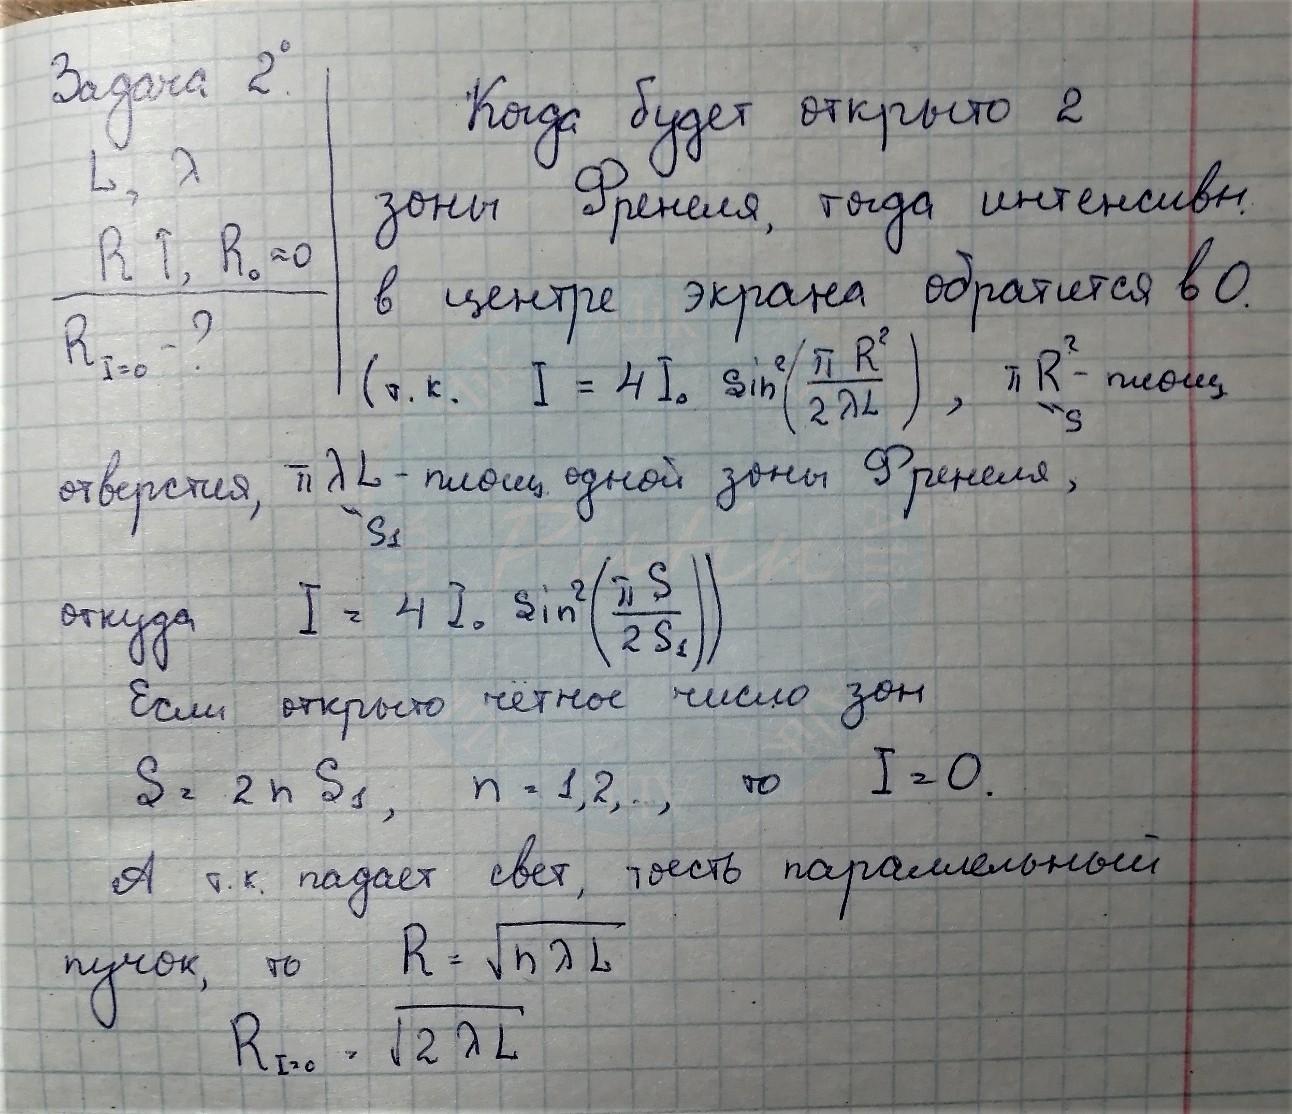 Задача 2°.
L, λ
R ↑, R₀ ≈ 0
R_{I=0} - ?
Когда будет открыто 2
зоны Френеля, тогда интенсивн.
в центре экрана обратится в 0.
(т.к. I = 4 I₀ sin²(πR²/2λL), πR² - площ
S
отверстия, πλL - площ. одной зоны Френеля,
S₁
откуда I = 4 I₀ sin²(πS/2S₁))
Если открыто чётное число зон
S = 2n S₁, n = 1,2,.., то I = 0.
А т.к. падает свет, тоесть параллельный
пучок, то R = √nλL
R_{I=0} = √2λL